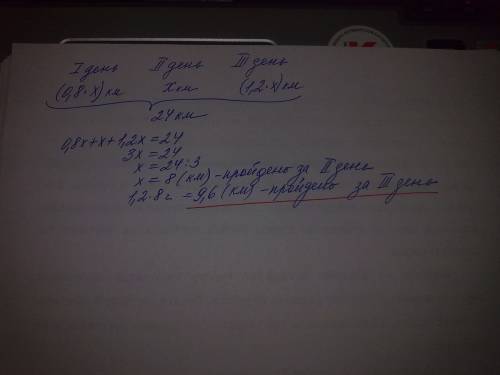 I день II день III день
(0,8·x)км x км (1,2·x)км
24 км
0,8x+x+1,2x=24
3x=24
x=24:3
x=8(км)-пройдено за II день
1,2·8 =9,6(км)-пройдено за III день